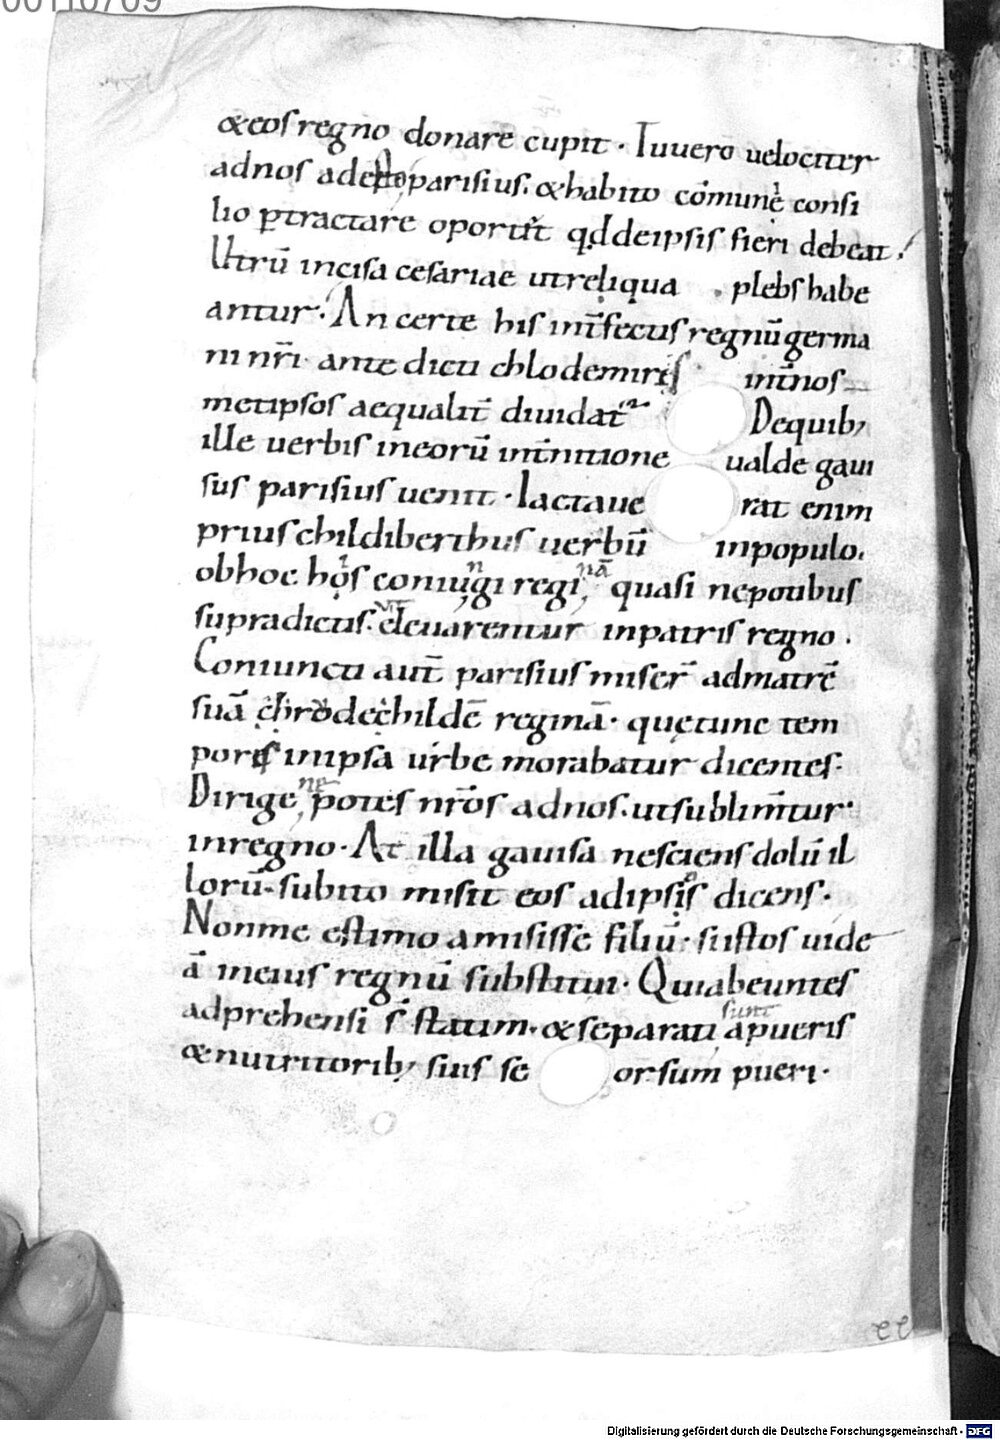 &eos regno donare cupit. Tu uero uelociter
ad nos adesto parisius. & habito cōmune consi
lio ꝑtractare oportet qd de ipsis fieri debeat.
Utrū incisa cesariae ut reliqua plebs habe
antur. An certe his int̄fectis regnū germa
ni nr̄i ante dicti chlodemiris int̄ nos
metipsos aequalit̄ diuidat᷑ De quib;
ille uerbis in eorū int̄ntione ualde gaui
sus parisius uenit. Iactaue rat enim
prius childiberthus uerbū in populo.
ob hoc hos coniungi regi, nā quasi nepotibus
supradictis. ut eleuarentur in patris regno.
Coniuncti aut̄ parisius miser̄ ad matrē
suā chrodechildē reginā. quę tunc tem
poris in ipsa urbe morabatur dicentes.
Dirige, nepotes nr̄os ad nos. ut sublimt̄ur
in regno. At illa gauisa nesciens dolū il
lorū. subito misit eos ad ipsos dicens.
Non me estimo amisisse filiū. si istos uide
ā in eius regnū substitui. Qui abeuntes
adprehensi s̄ statim. & separati sunt a pueris
& nutritorib; suis se orsum pueri.
Digitalisierung gefördert durch die Deutsche Forschungsgemeinschaft - DFG